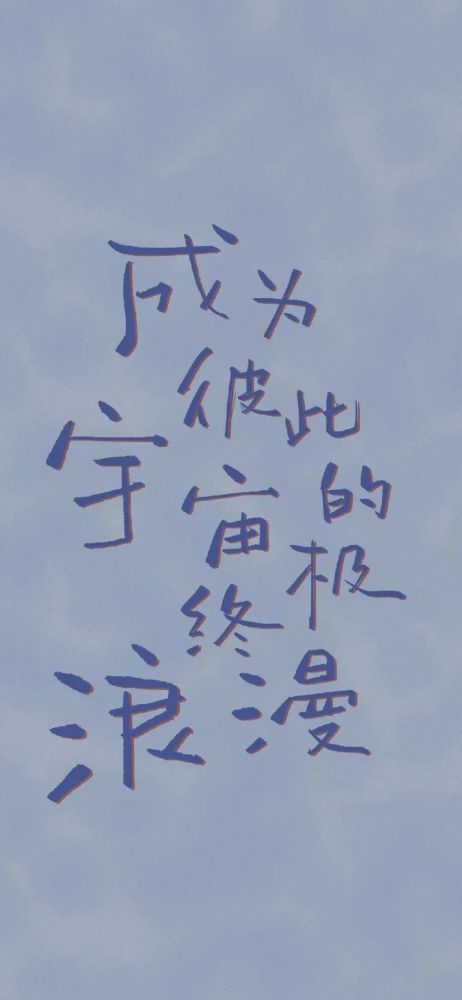 成为
彼此的
宇宙极
终
浪漫